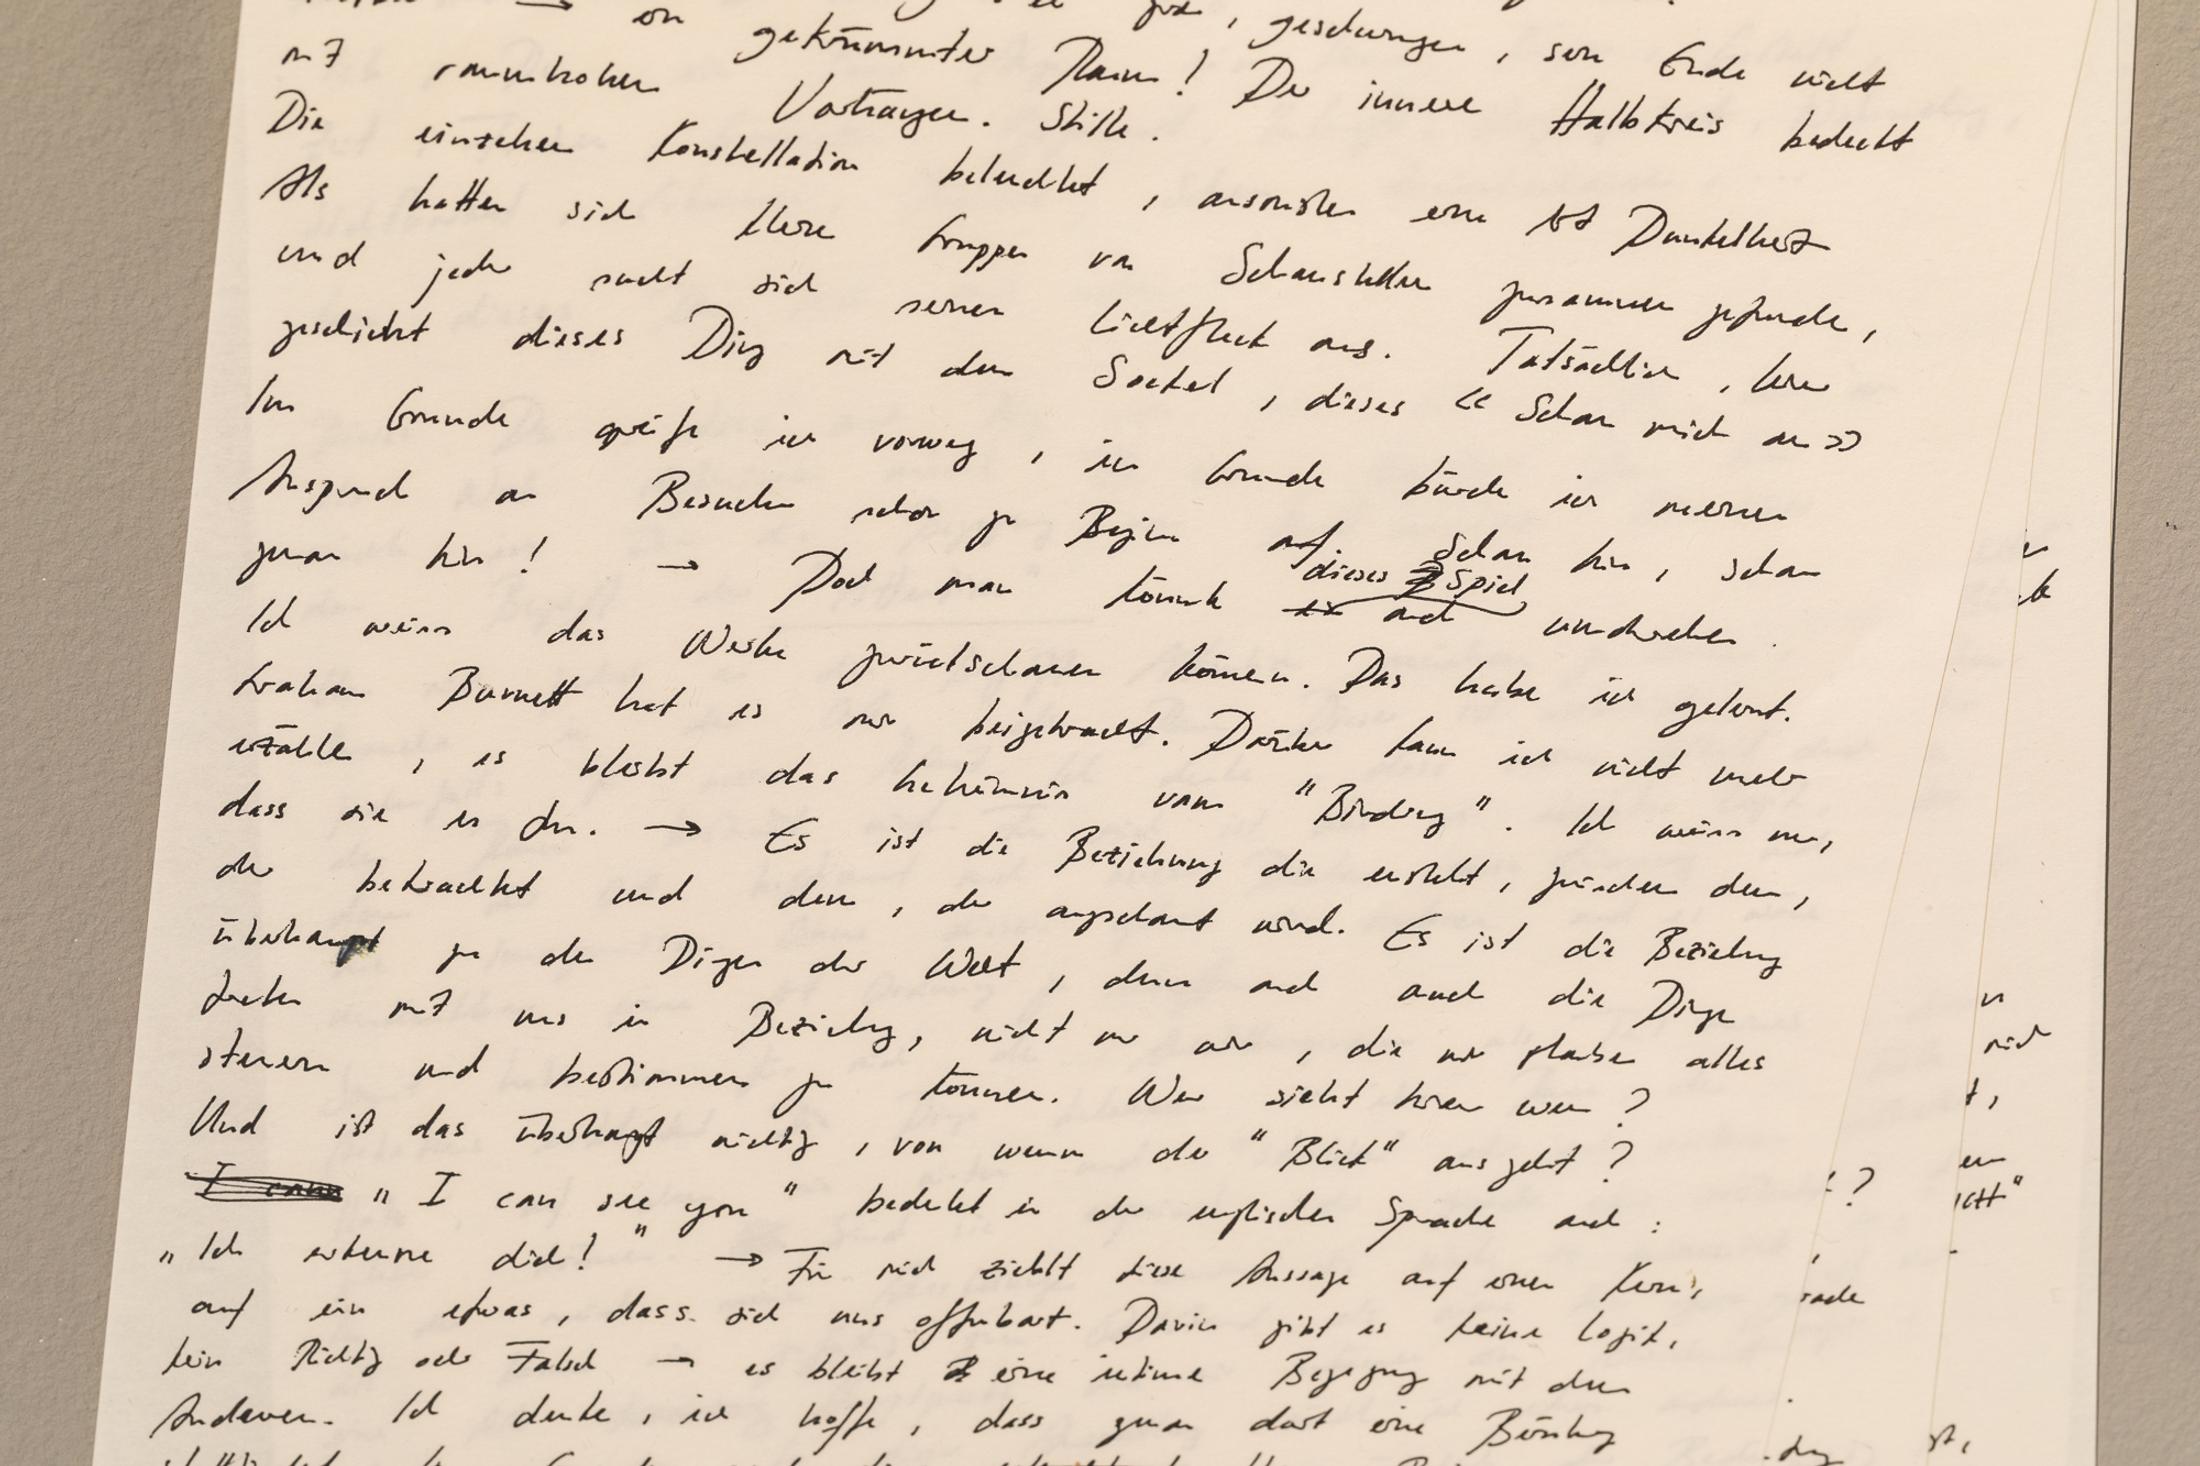 → ein gekrümmter Raum! Der innere Halbkreis bedeckt
mit raumhohen Vorhängen. Stille.
Die einzelnen Konstellation beleuchtet, ansonsten eine Art Dunkelheit
Als hätten sich kleine Gruppen von Schaustellern zusammen gefunden,
und jeder sucht sich seinen Lichtfleck aus. Tatsächlich, hier
geschieht dieses Ding mit dem Sockel, dieses « Schau mich an »
Im Grunde greife ich vorweg, im Grunde bürde ich meinen
Anspruch an Besucher schon zu Beginn auf. Schau hin, schau
genau hin! → Doch man könnte dieses Spiel auch umdrehen.
Ich weiss das Werke zurückschauen können. Das habe ich gelernt.
Graham Burnett hat es mir beigebracht. Darüber kann ich nicht mehr
erzählen, es bleibt das Geheimnis vom "Birding". Ich weiss nur,
dass sie es tun. → Es ist die Beziehung die entsteht, zwischen dem,
der betrachtet und dem, der angeschaut wird. Es ist die Beziehung
überhaupt zu den Dingen der Welt, denn auch die Dinge
treten mit uns in Beziehung, nicht nur wir, die wir glauben alles
steuern und bestimmen zu können. Wer sieht hier wen?
Und ist das überhaupt wichtig, von wem der "Blick" ausgeht?
„I can see you" bedeutet in der englischen Sprache auch:
„Ich erkenne dich!" → Für mich zielt diese Aussage auf einen Kern,
auf ein etwas, dass sich uns offenbart. Darin gibt es keine Logik,
kein Richtig oder Falsch → es bleibt eine intime Begegnung mit dem
Anderen. Ich denke, ich hoffe, dass genau dort eine Berührung